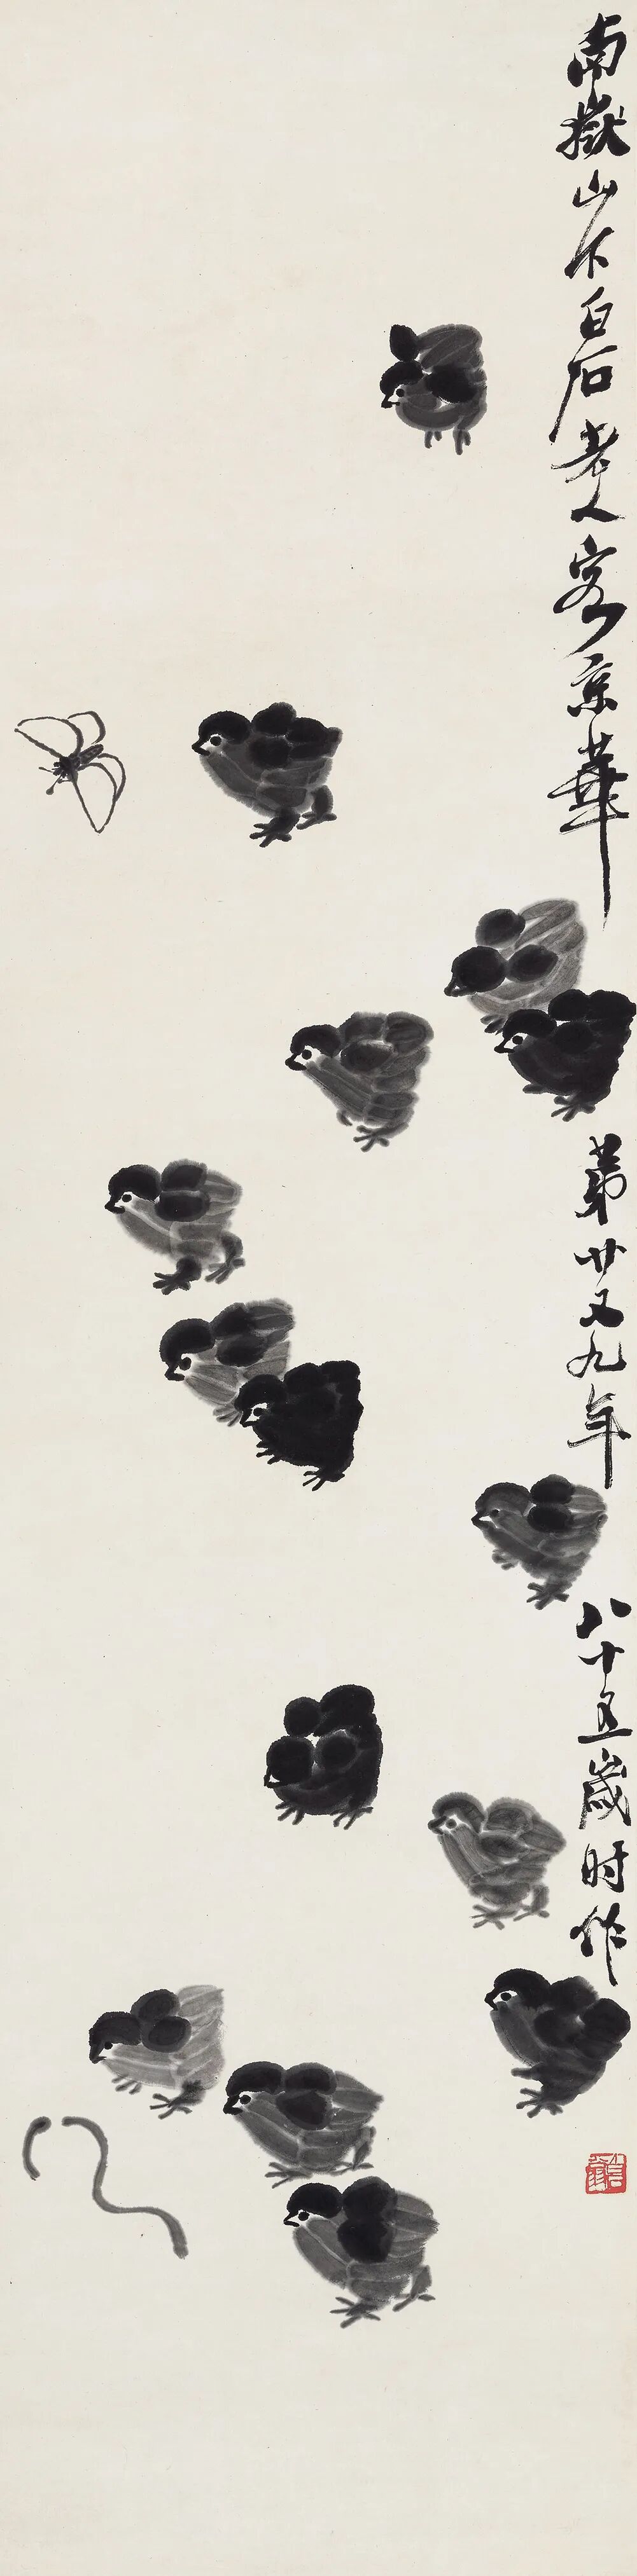 南嶽山下白石老人客京華第廿又九年八十五歲时作